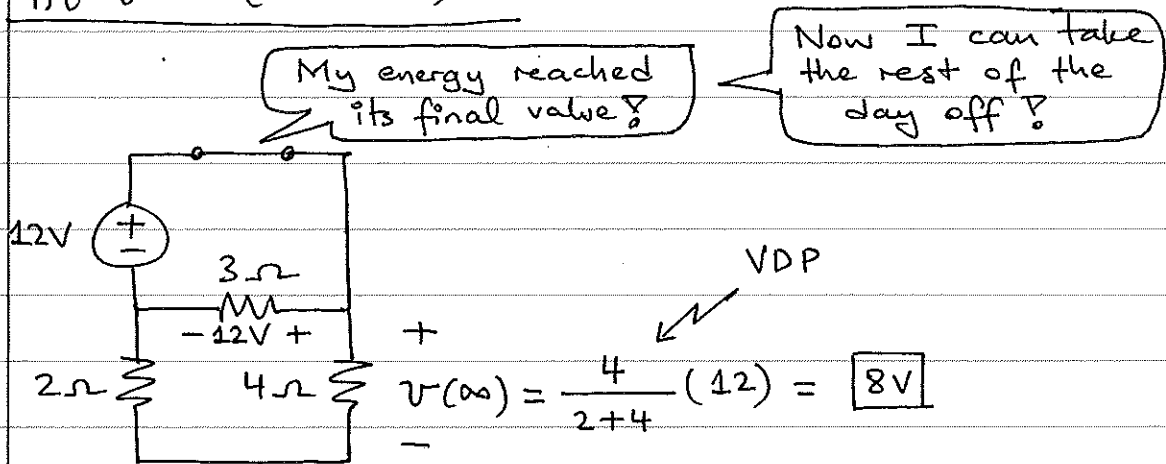 My energy reached
its final value!
Now I can take
the rest of the
day off!
12V
+
-
3Ω
- 12V +
2Ω
4Ω
+
v(∞) = 4/(2+4) (12) = 8V
-
VDP